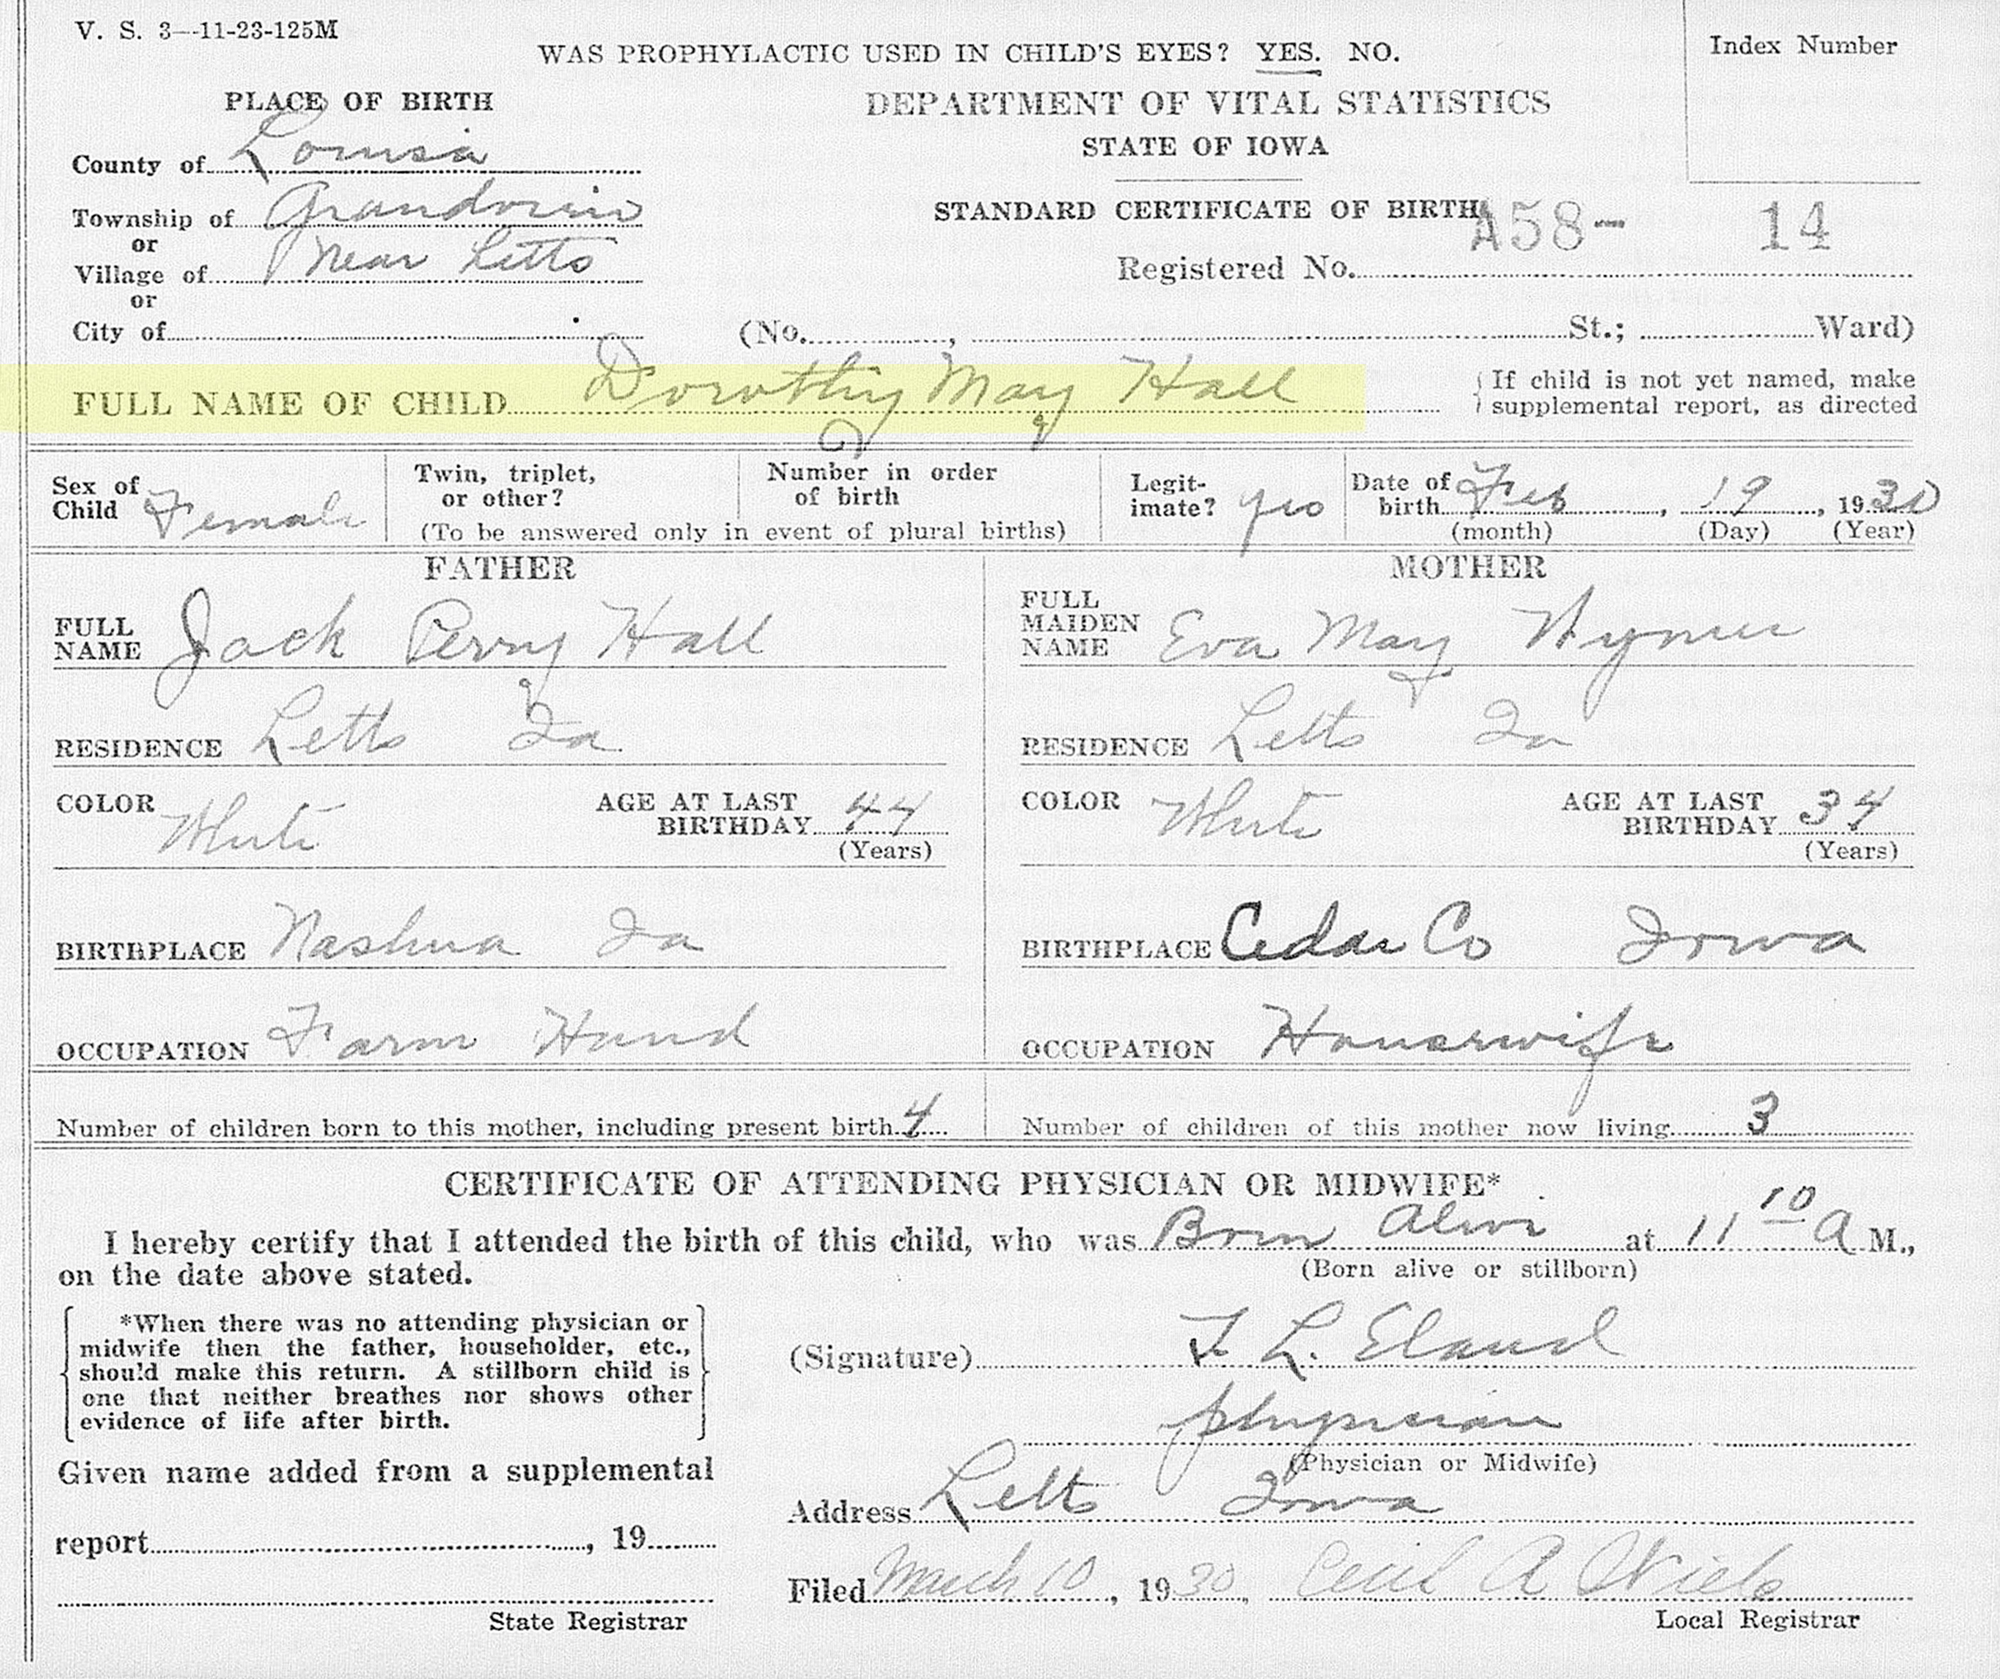 V. S. 3--11-23-125M
WAS PROPHYLACTIC USED IN CHILD'S EYES? YES. NO.
Index Number
PLACE OF BIRTH
DEPARTMENT OF VITAL STATISTICS
STATE OF IOWA
County of Louisa
Township of Grandview
STANDARD CERTIFICATE OF BIRTH
A58- 14
or
Village of Near Letts
Registered No.
or
City of
(No. , St.; Ward)
FULL NAME OF CHILD Dorothy May Hall
If child is not yet named, make
supplemental report, as directed
Sex of
Child Female
Twin, triplet,
or other?
Number in order
of birth
(To be answered only in event of plural births)
Legit-
imate? yes
Date of
birth Feb , 19 , 1930
(month) (Day) (Year)
FATHER
FULL
NAME Jack Perry Hall
RESIDENCE Letts Ia
COLOR White
AGE AT LAST
BIRTHDAY 44
(Years)
BIRTHPLACE Nashua Ia
OCCUPATION Farm Hand
MOTHER
FULL
MAIDEN
NAME Eva May
RESIDENCE Letts Ia
COLOR White
AGE AT LAST
BIRTHDAY 34
(Years)
BIRTHPLACE Cedar Co Iowa
OCCUPATION Housewife
Number of children born to this mother, including present birth 4
Number of children of this mother now living 3
CERTIFICATE OF ATTENDING PHYSICIAN OR MIDWIFE*
I hereby certify that I attended the birth of this child, who was Born Alive at 11 10 A M.,
(Born alive or stillborn)
on the date above stated.
*When there was no attending physician or
midwife then the father, householder, etc.,
should make this return. A stillborn child is
one that neither breathes nor shows other
evidence of life after birth.
(Signature) L. Eland
physician
(Physician or Midwife)
Given name added from a supplemental
report , 19
State Registrar
Address Letts Iowa
Filed March 10 , 1930, Cecil A
Local Registrar